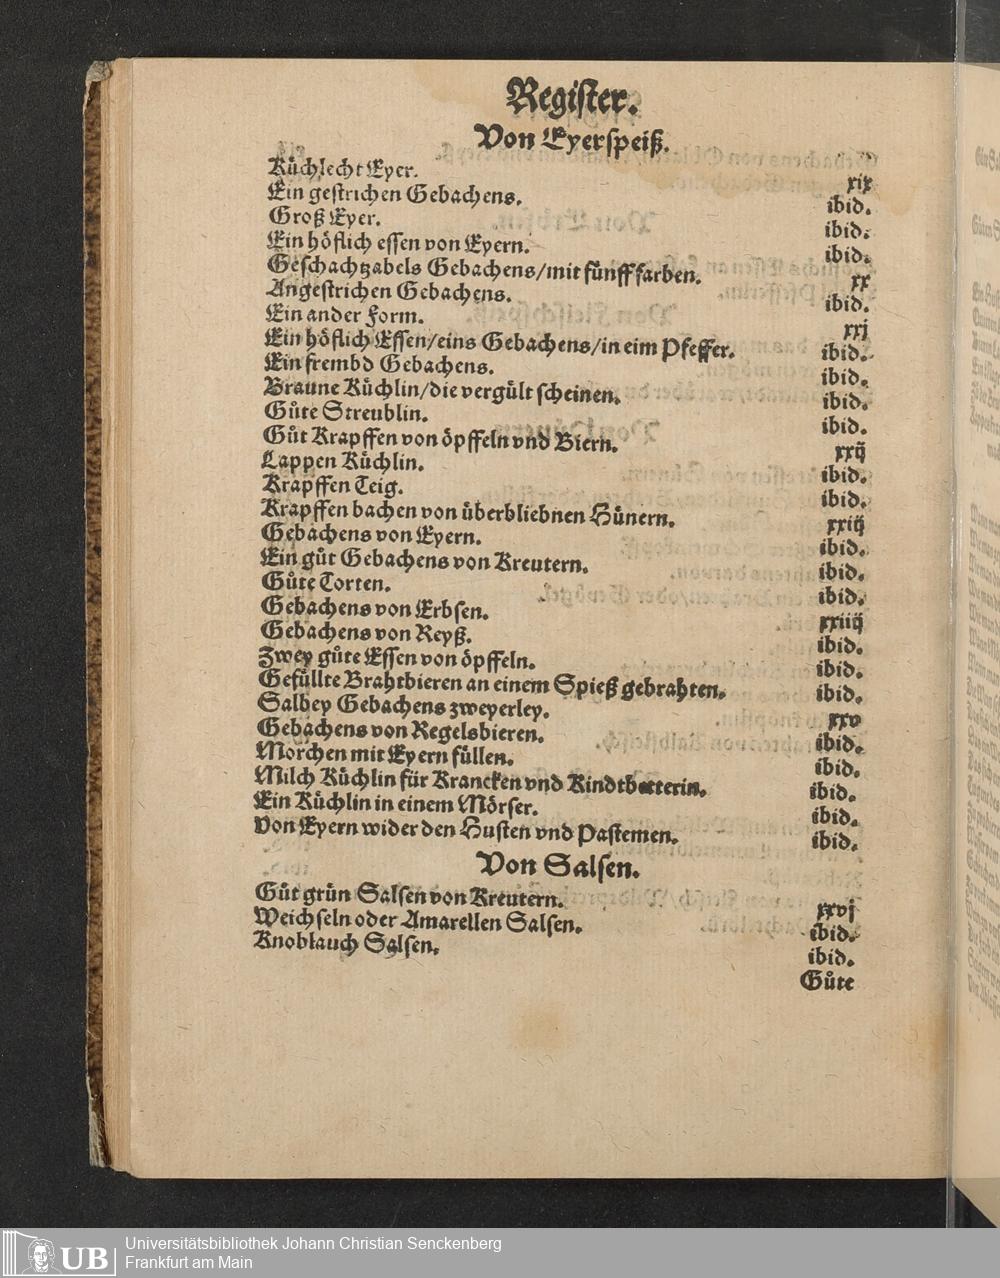 Register.
Von Eyerspeiß.
Küchlecht Eyer. xix
Ein gestrichen Gebachens. ibid.
Groß Eyer. ibid.
Ein höflich essen von Eyern. ibid.
Geschachtzabels Gebachens/mit fünff farben. xx
Angestrichen Gebachens. ibid.
Ein ander form. xxj
Ein höflich Essen/eins Gebachens/in eim Pfeffer. ibid.
Ein frembd Gebachens. ibid.
Braune Küchlin/die vergült scheinen. ibid.
Gůte Streublin. ibid.
Gůt Krapffen von öpffeln vnd Biern. xxij
Lappen Küchlin. ibid.
Krapffen Teig. ibid.
Krapffen bachen von überbliebnen Hünern. xxiij
Gebachens von Eyern. ibid.
Ein gůt Gebachens von Kreutern. ibid.
Gůte Torten. ibid.
Gebachens von Erbsen. xxiiij
Gebachens von Reyß. ibid.
Zwey gůte Essen von öpffeln. ibid.
Gefüllte Brahtbieren an einem Spieß gebrahten. ibid.
Salbey Gebachens zweyerley. xxv
Gebachens von Regelsbieren. ibid.
Morchen mit Eyern füllen. ibid.
Milch Küchlin für Krancken vnd Kindtbetterin. ibid.
Ein Küchlin in einem Mörser. ibid.
Von Eyern wider den Husten vnd Pastemen. ibid.
Von Salsen.
Gůt grün Salsen von Kreutern. xxvj
Weichseln oder Amarellen Salsen. ibid.
Knoblauch Salsen. ibid.
Gůte
UB
Universitätsbibliothek Johann Christian Senckenberg
Frankfurt am Main